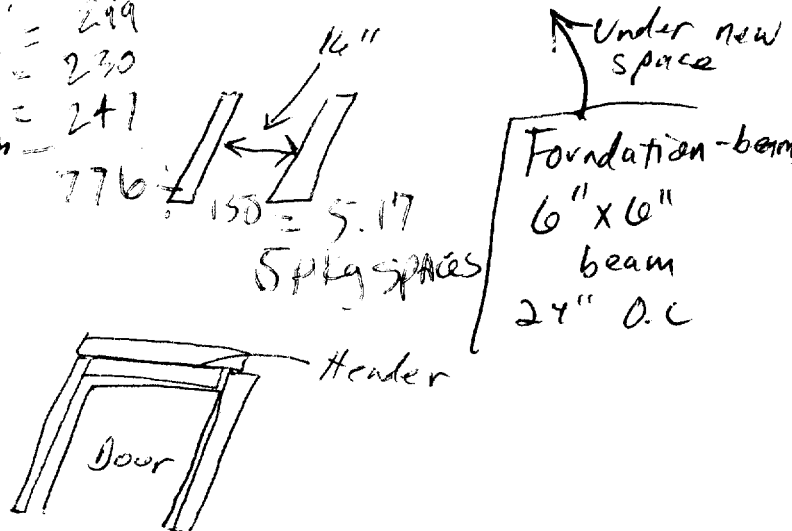 = 299
= 230
= 241
776 ÷ 150 = 5.17
5 pkg spaces
16"
Under new
space
Foundation-beam
6" x 6"
beam
24" O.C
Header
Door